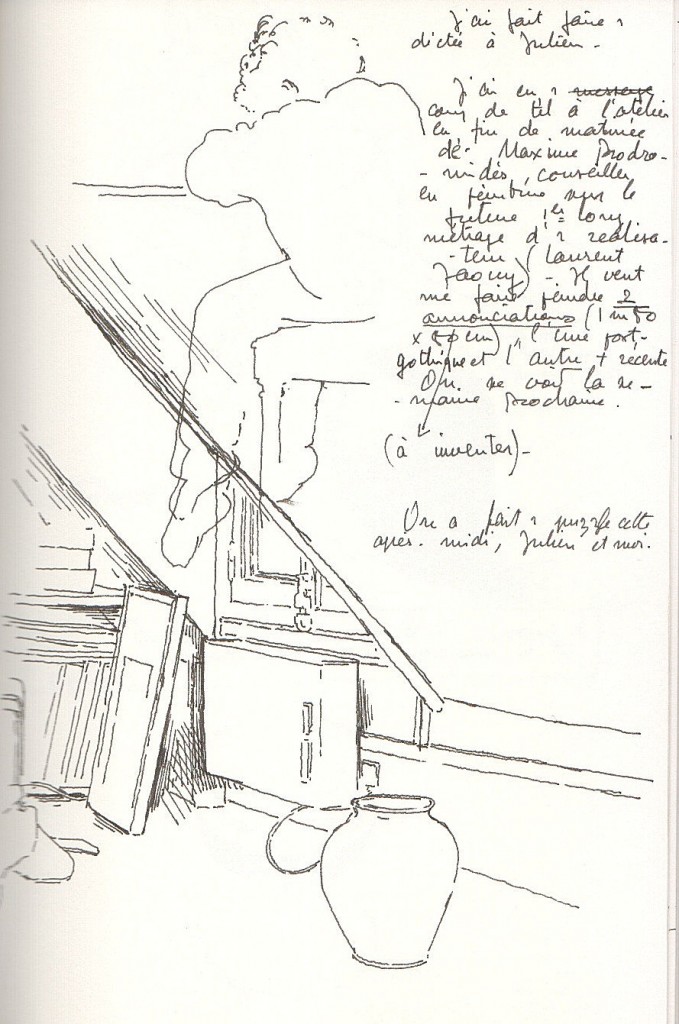 J'ai fait faire 1
dictée à Julien.
J'ai eu 1 message
coup de tél à l'atelier
en fin de matinée
de Maxime Prodro-
-midès, conseiller
en peinture pour le
future 1er long
métrage d'1 réalisa-
-teur (Laurent
) - Il veut
me faire peindre 2
annonciations (1m50
x 80 cm), l'une
gothique et l'autre + récente
On se voit la se-
-maine prochaine.
(à inventer)-
On a fait 1 puzzle cette
après-midi, Julien et moi.